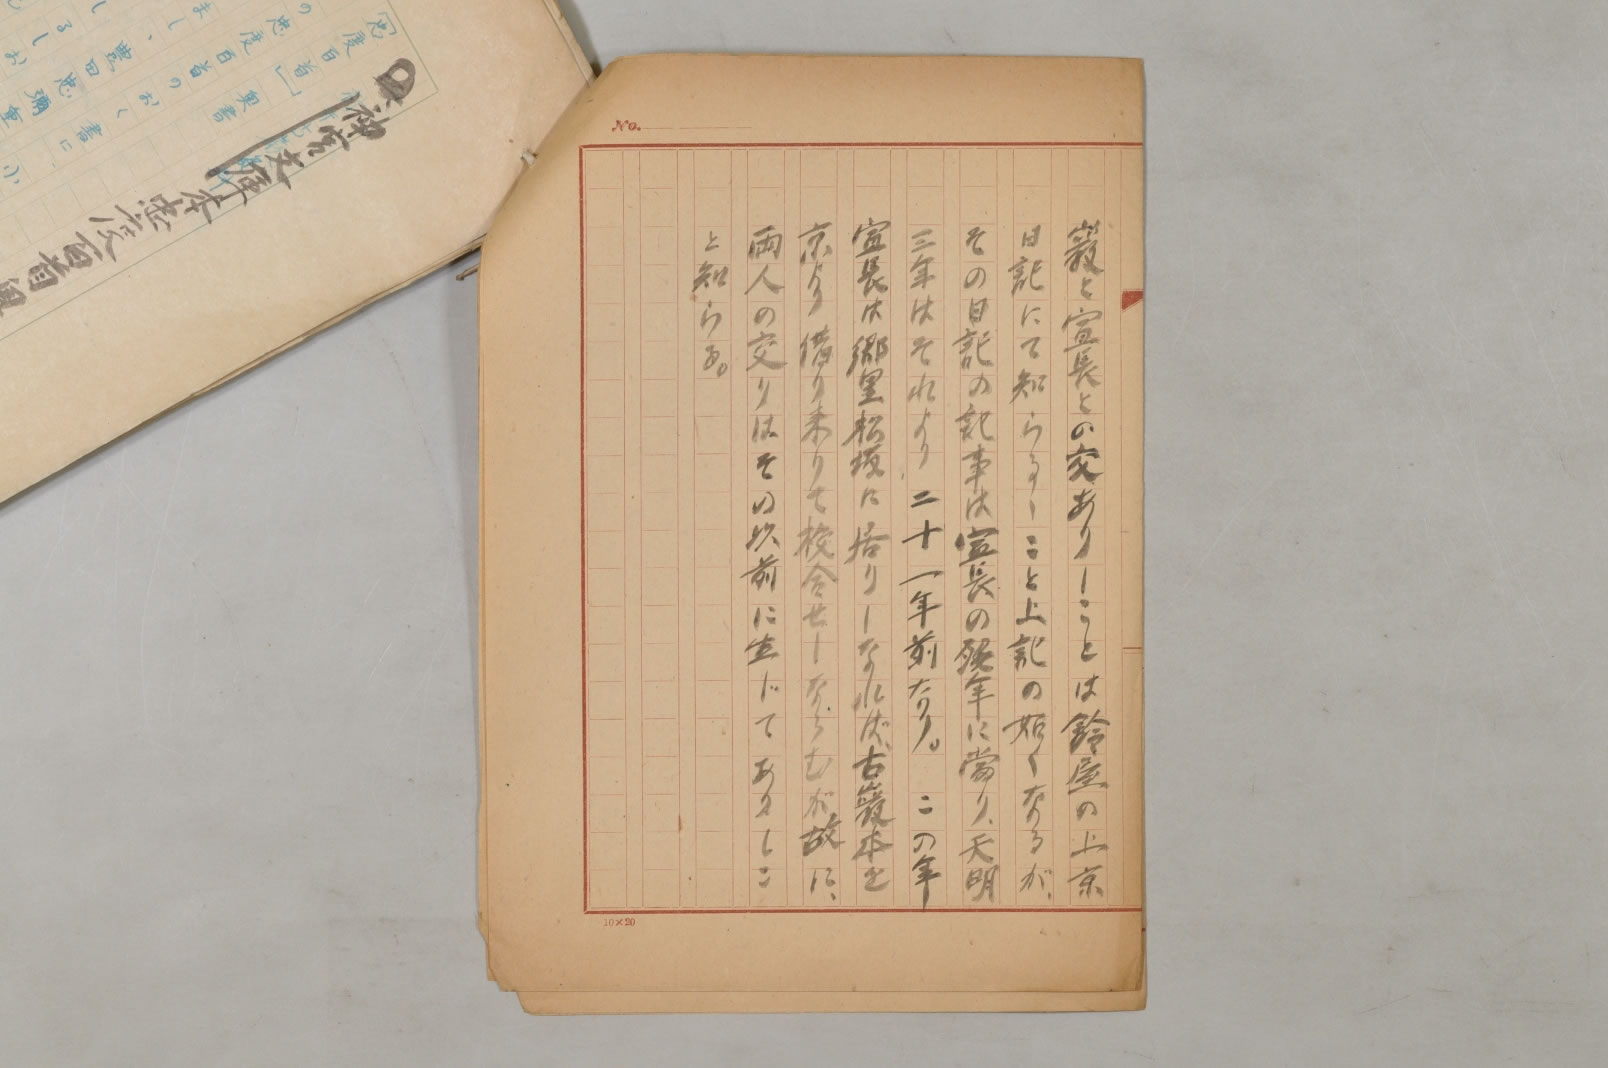 巖と宣長との交ありしことは鈴屋の上京
日記にて知らるゝこと上記の如くなるが、
その日記の記事は宣長の晩年に當り、天明
三年はそれより二十一年前なり。この年
宣長は郷里松坂に居りしなれば、古巖本を
京より借り来りて校合せしならむが故に、
両人の交りはその以前に生じてありしこ
と知らる。
No.
10×20
神宮文庫本忠度百首奥
忠度百首 奥書